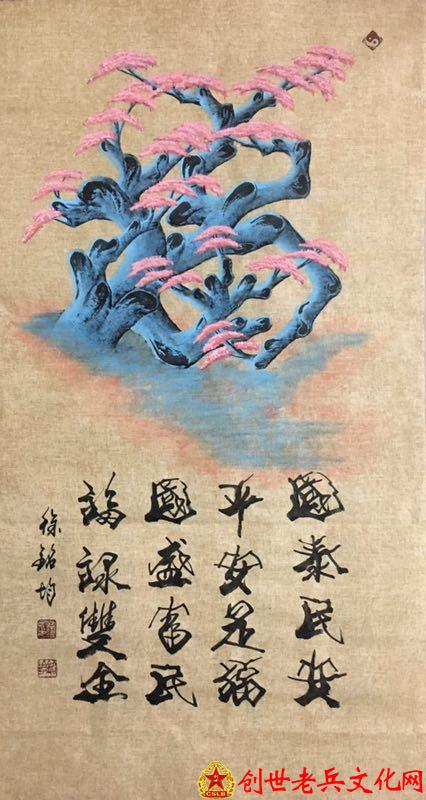 國泰民安
平安是福
國盛富民
福祿雙全
徐銘均
创世老兵文化网
CSLB